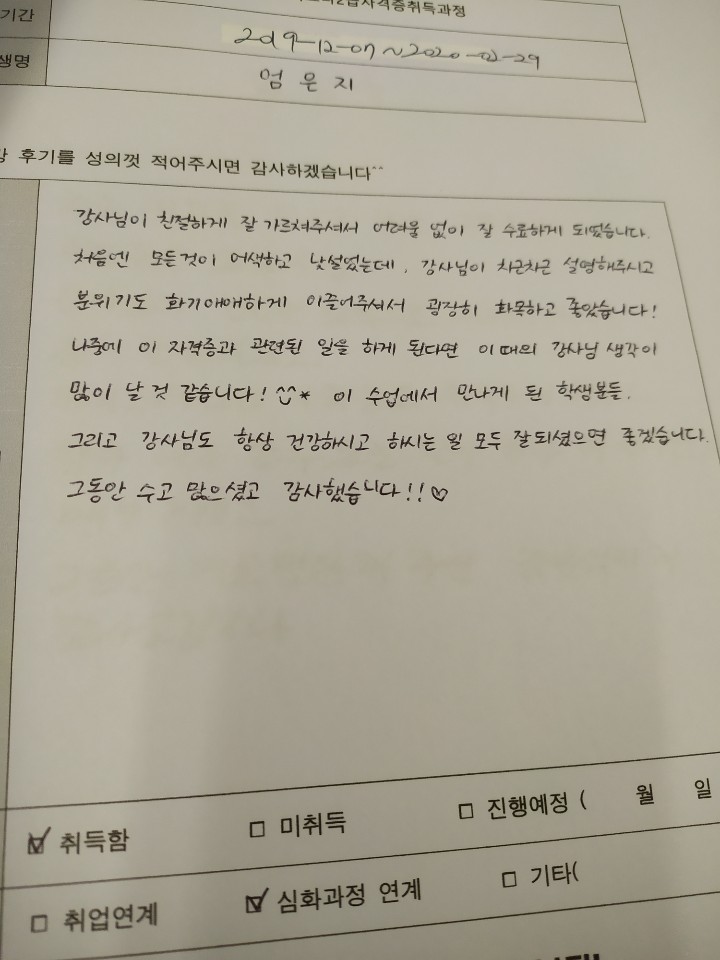 2급자격증취득과정
기간
2019-12-07~2020-02-29
생명
엄은지
후기를 성의껏 적어주시면 감사하겠습니다^^
강사님이 친절하게 잘 가르쳐주셔서 어려울 없이 잘 수료하게 되었습니다.
처음엔 모든것이 어색하고 낯설었는데, 강사님이 차근차근 설명해주시고
분위기도 화기애애하게 이끌어주셔서 굉장히 화목하고 좋았습니다!
나중에 이 자격증과 관련된 일을 하게 된다면 이때의 강사님 생각이
많이 날 것 같습니다! ^^* 이 수업에서 만나게 된 학생분들.
그리고 강사님도 항상 건강하시고 하시는 일 모두 잘되셨으면 좋겠습니다.
그동안 수고 많으셨고 감사했습니다!!♡
☑ 취득함 □ 미취득 □ 진행예정 ( 월 일
□ 취업연계 ☑ 심화과정 연계 □ 기타(